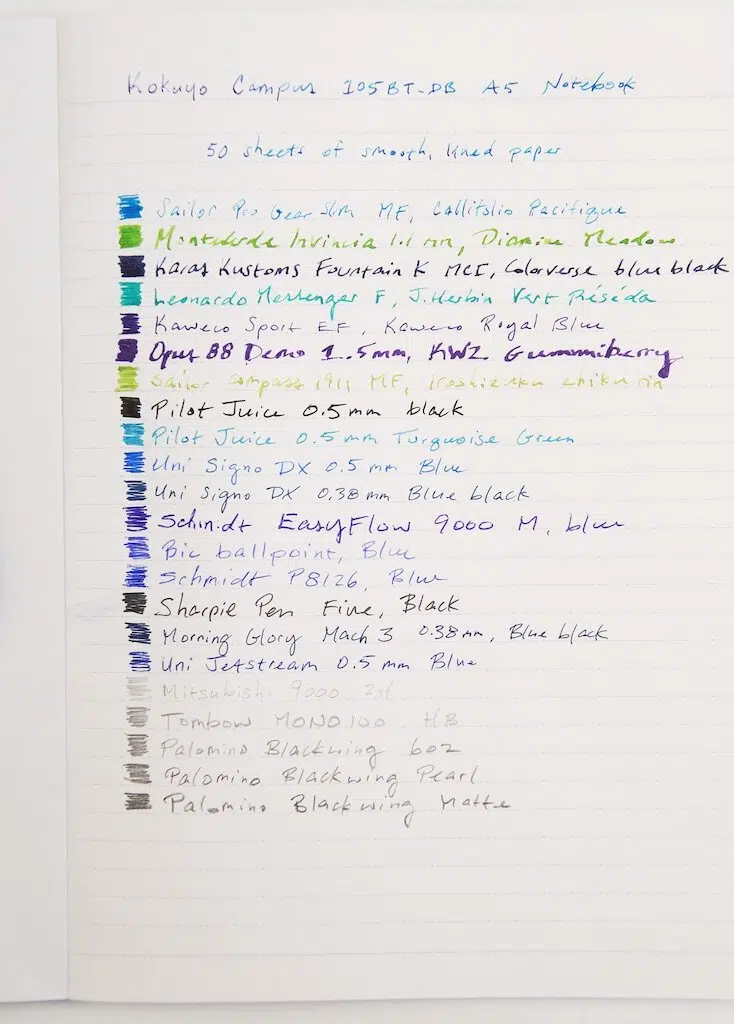 Kokuyo Campus 105BT-DB A5 Notebook
50 sheets of smooth, lined paper
Sailor Pro Gear Slim MF, Callifolio Pacifique
Monteverde Invincia 1.1 mm, Diamine Meadow
Karas Kustoms Fountain K MCI, Colorverse blue black
Leonardo Messenger F, J. Herbin Vert Réséda
Kaweco Sport EF, Kaweco Royal Blue
Opus 88 Demo 1.5mm, KWZ Gummiberry
Sailor Compass 1911 MF, iroshizuku chiku rin
Pilot Juice 0.5mm black
Pilot Juice 0.5mm Turquoise Green
Uni Signo DX 0.5 mm Blue
Uni Signo DX 0.38mm Blue black
Schmidt EasyFlow 9000 M, blue
Bic ballpoint, Blue
Schmidt P8126, Blue
Sharpie Pen Fine, Black
Morning Glory Mach 3 0.38mm, Blue black
Uni Jetstream 0.5 mm Blue
Mitsubishi 9000 2H
Tombow MONO100 HB
Palomino Blackwing 602
Palomino Blackwing Pearl
Palomino Blackwing Matte